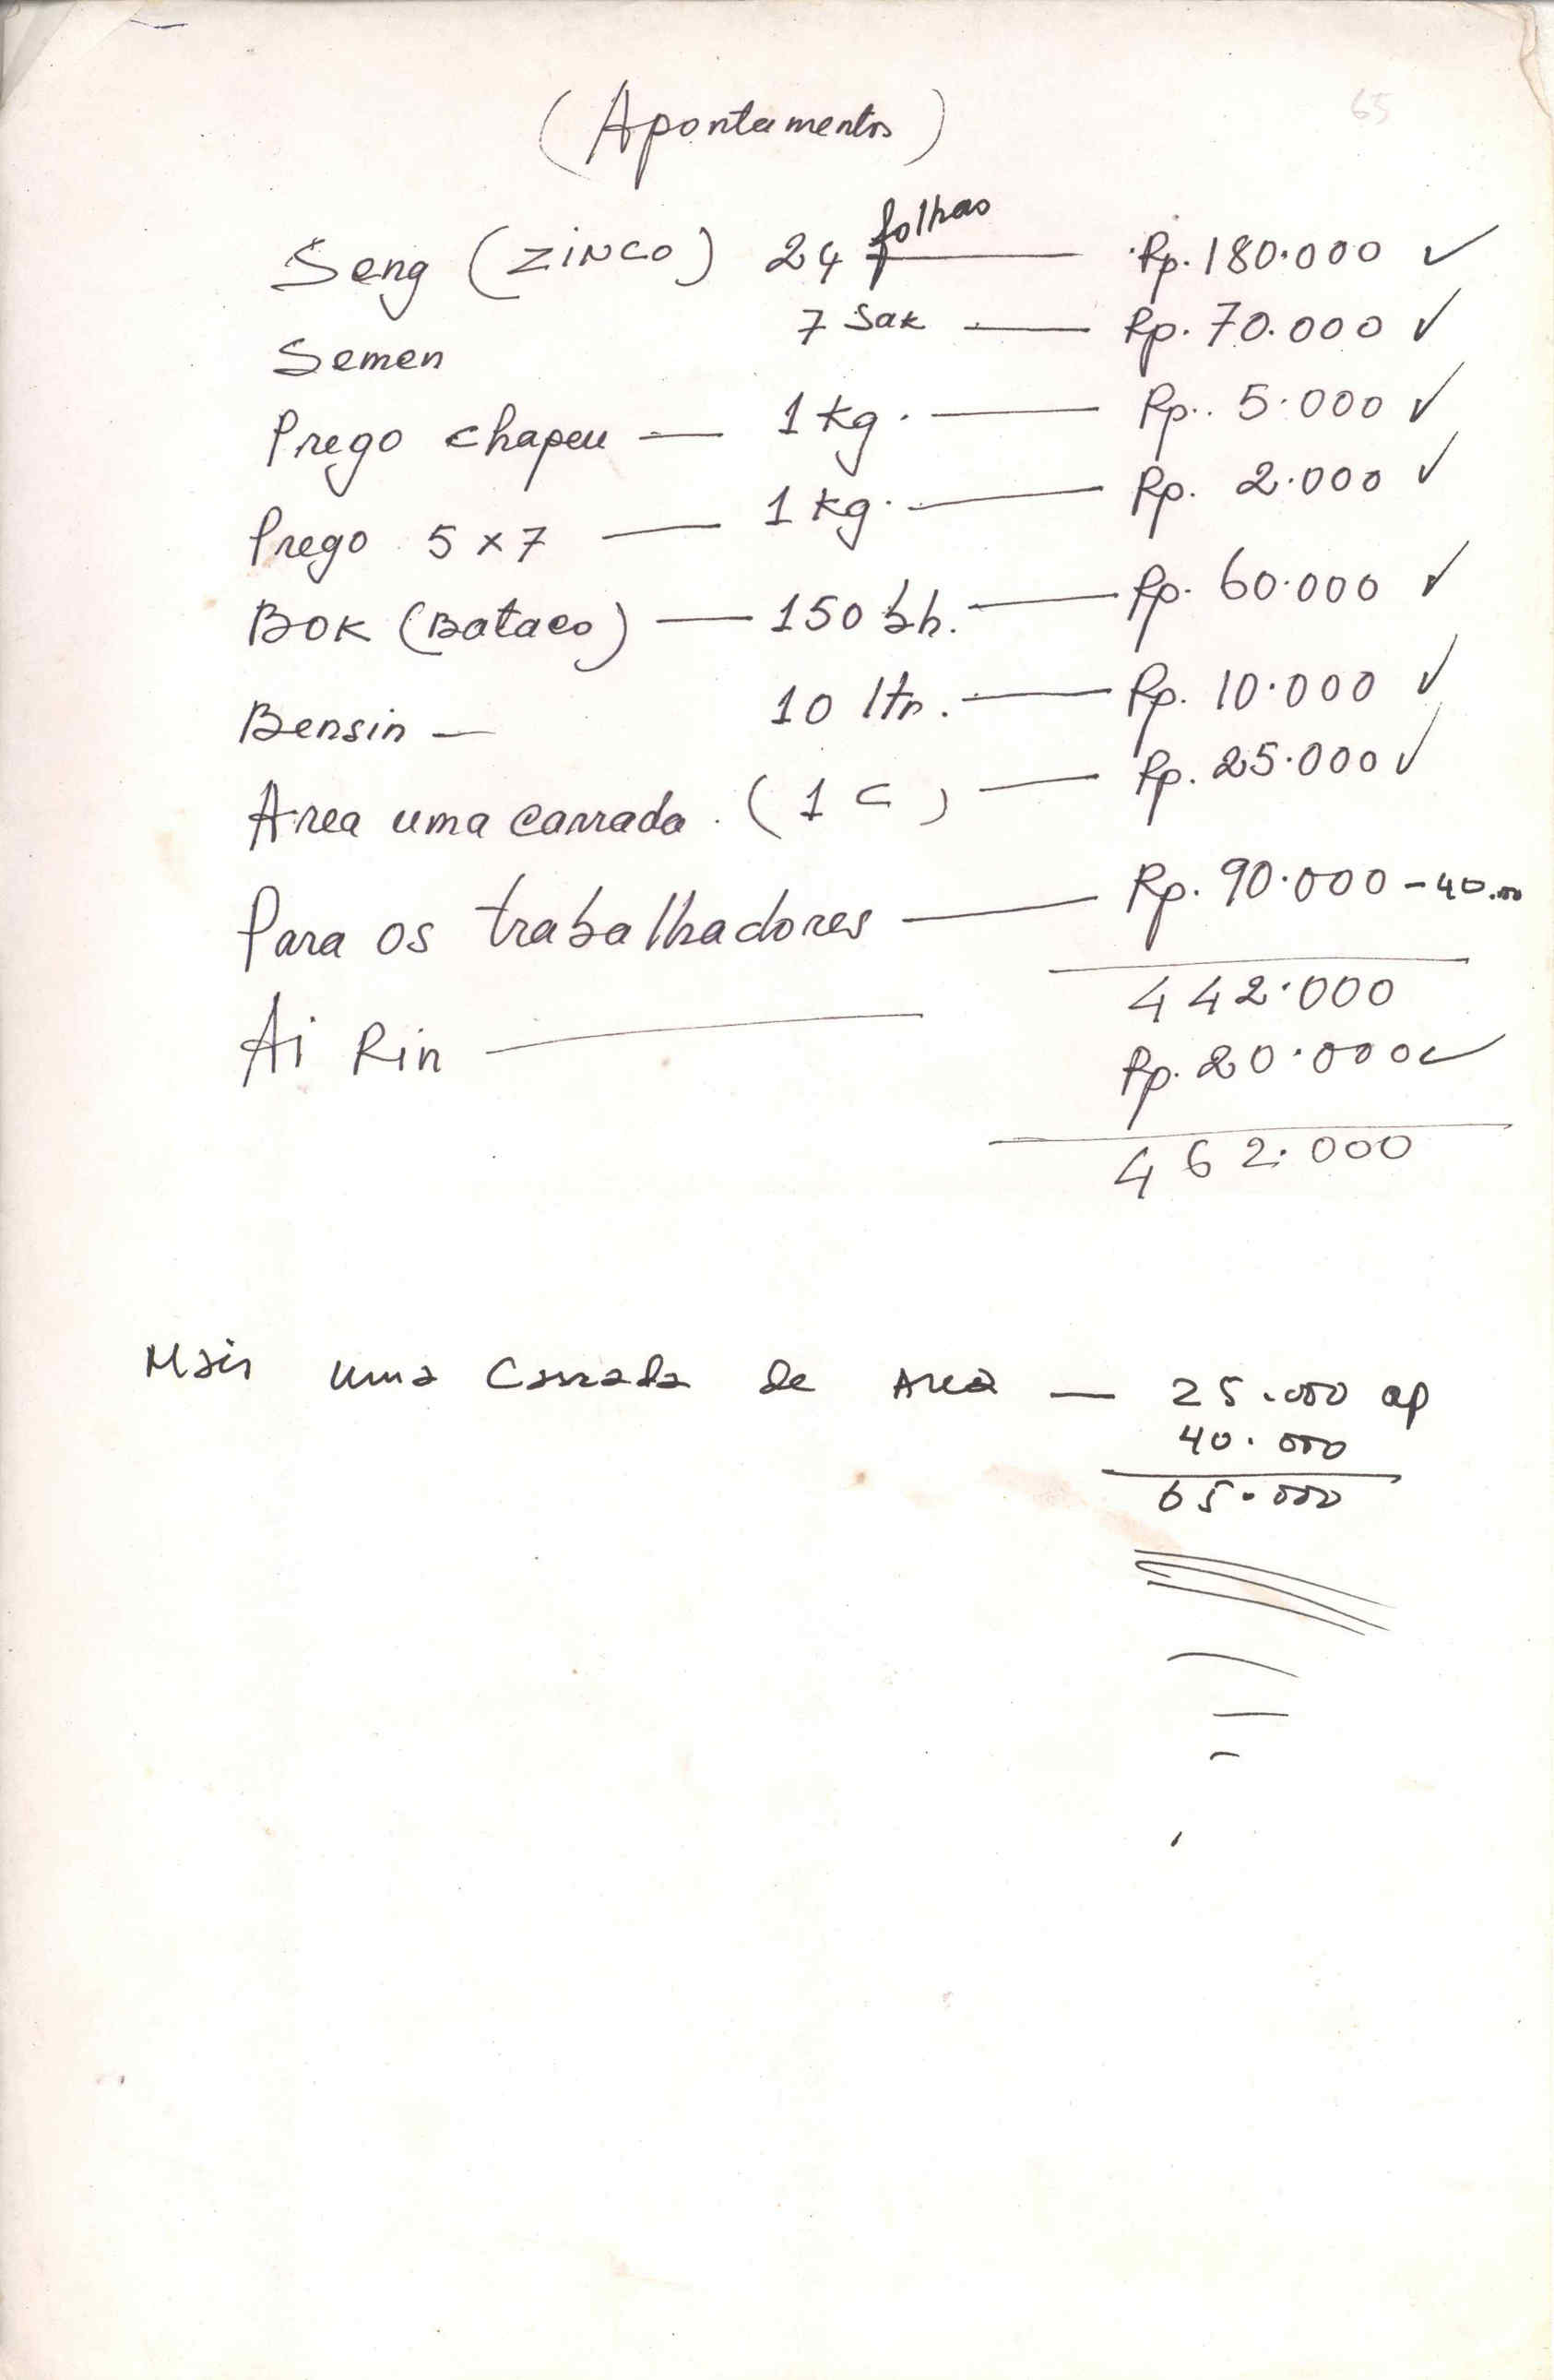 (Apontamentos)
65
Seng (ZINCO) 24 folhas — Rp. 180.000 ✓
Semen 7 Sak — Rp. 70.000 ✓
Prego chapeu — 1 kg. — Rp. 5.000 ✓
Prego 5 x 7 — 1 kg. — Rp. 2.000 ✓
BOK (Bataco) — 150 bh. — Rp. 60.000 ✓
Bensin — 10 ltr. — Rp. 10.000 ✓
Area uma carrada. (1 C) — Rp. 25.000 ✓
Para os trabalhadores — Rp. 90.000 - 40.000
442.000
Ai Rin — Rp. 20.000 ✓
462.000
Mais uma Carrada de Area — 25.000
40.000
65.000